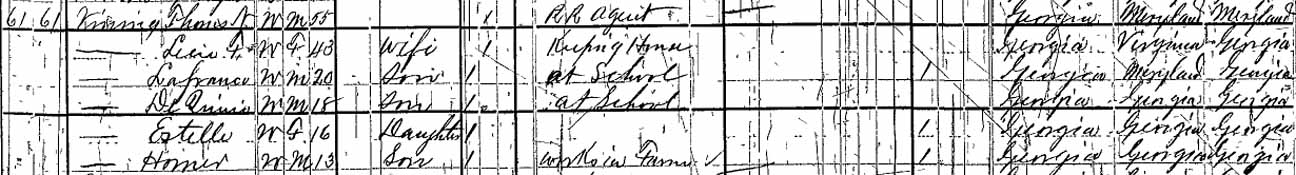 61 61 Thomas W M 55 1 RR Agent Georgia Maryland Maryland
— W F 43 Wife 1 Keeping House Georgia Virginia Georgia
— Lafranco W M 20 Son 1 at School 1 Georgia Maryland Georgia
— W M 18 Son 1 at School Georgia Georgia Georgia
— Estelle W F 16 Daughter 1 1 Georgia Georgia Georgia
— Homer W M 13 Son 1 works in Farm 1 Georgia Georgia Georgia